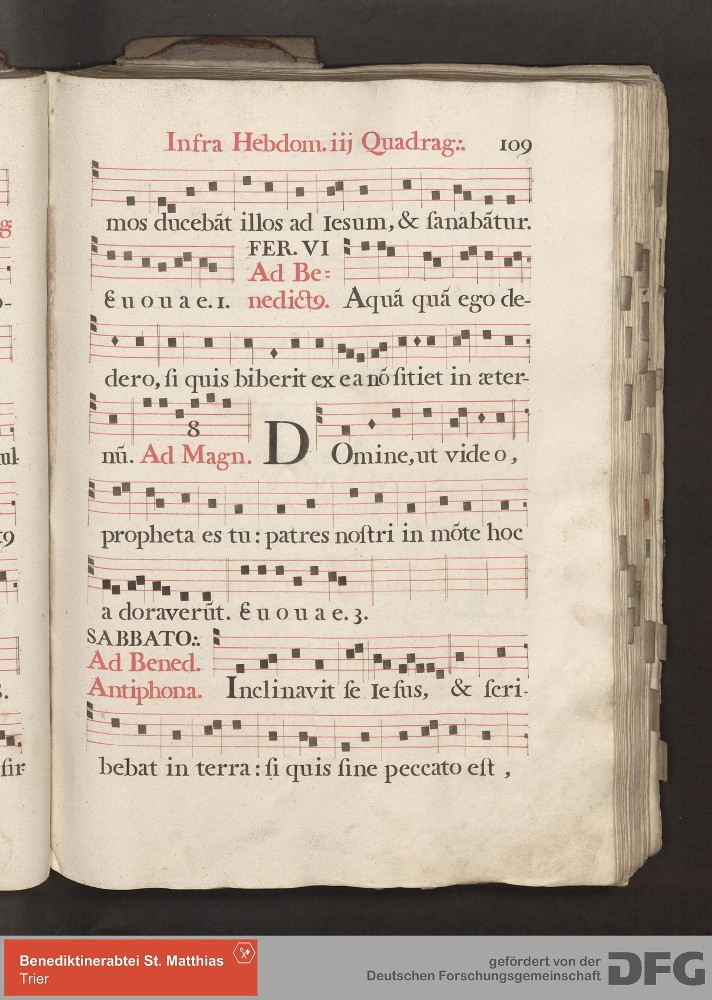 Infra Hebdom. iij Quadrag:. 109
mos ducebāt illos ad Iesum, & ſanabātur.
E u o u a e. 1. FER. VI
Ad Be=
nedict9. Aquā quā ego de-
dero, ſi quis biberit ex ea nō ſitiet in æter-
nū. Ad Magn. 8 DOmine, ut video,
propheta es tu: patres noſtri in mōte hoc
adoraverūt. E u o u a e. 3.
SABBATO:.
Ad Bened.
Antiphona. Inclinavit ſe Ieſus, & ſcri-
bebat in terra: ſi quis ſine peccato eſt,
Benediktinerabtei St. Matthias
Trier
gefördert von der
Deutschen Forschungsgemeinschaft DFG